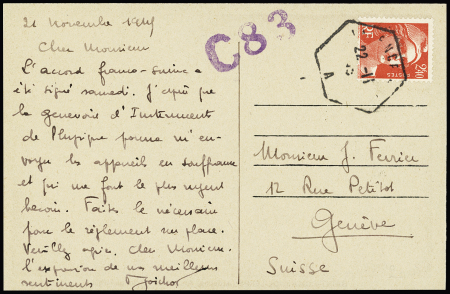 21 Novembre 1945
Cher Monsieur
L'accord franco-suisse a
été signé samedi. J'espère que
la genevoise d'Instruments
de Physique pourra m'en-
voyer les appareils en souffrance
et qui me font le plus urgent
besoin. Faites le nécessaire
pour le règlement sur place.
Veuillez agréer, Cher Monsieur,
l'expression de mes meilleurs
sentiments
C83
22-11
A
POSTES
Monsieur J. Ferrier
12 Rue Petitot
Genève
Suisse